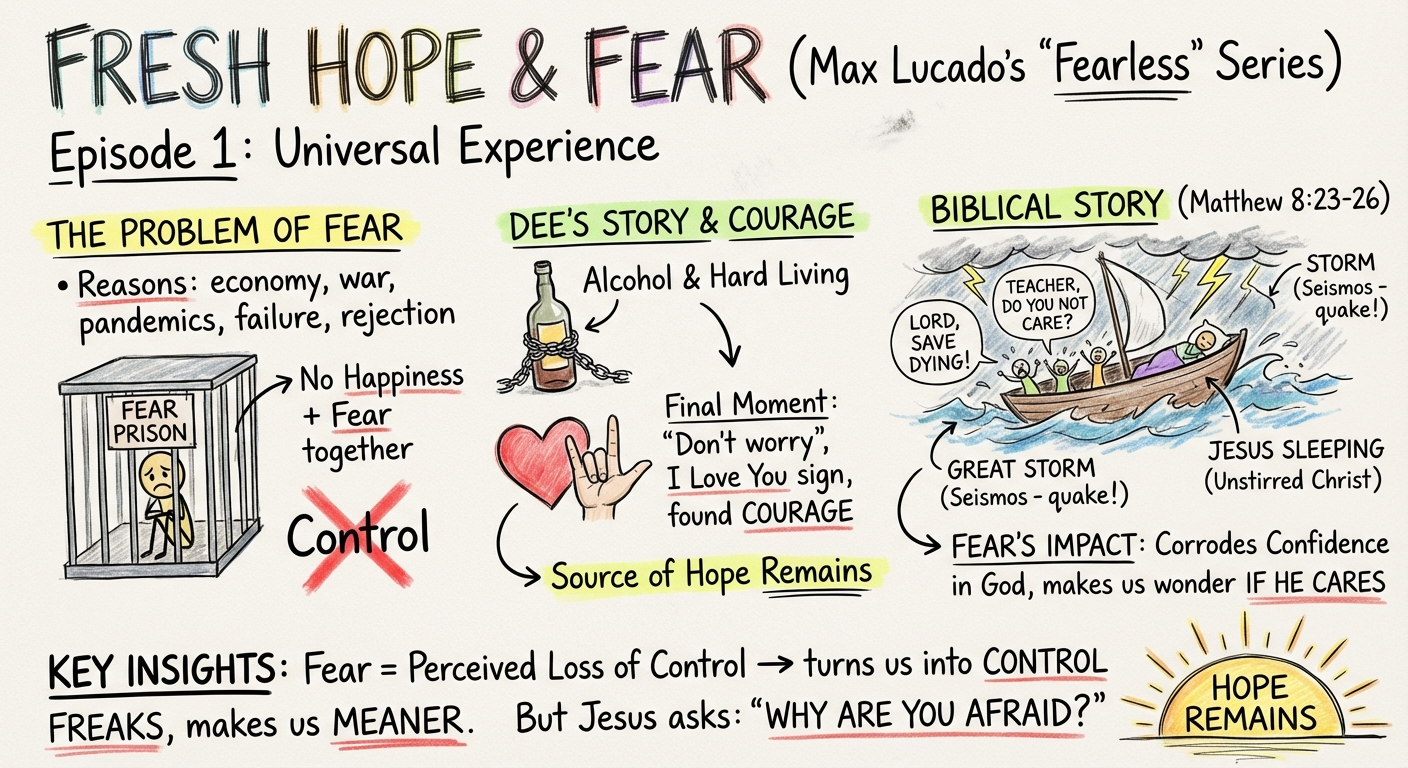 FRESH HOPE & FEAR (Max Lucado's "Fearless" Series)
Episode 1: Universal Experience
THE PROBLEM OF FEAR
• Reasons: economy, war,
pandemics, failure, rejection
FEAR
PRISON
No Happiness
+ Fear
together
Control
DEE'S STORY & COURAGE
Alcohol & Hard Living
Final Moment:
"Don't worry",
I Love You sign,
found COURAGE
Source of Hope Remains
BIBLICAL STORY (Matthew 8:23-26)
LORD,
SAVE
DYING!
TEACHER,
DO YOU NOT
CARE?
STORM
(Seismos -
quake!)
JESUS SLEEPING
(Unstirred Christ)
GREAT STORM
(Seismos - quake!)
FEAR'S IMPACT: Corrodes Confidence
in God, makes us wonder IF HE CARES
KEY INSIGHTS: Fear = Perceived Loss of Control → turns us into CONTROL
FREAKS, makes us MEANER. But Jesus asks: "WHY ARE YOU AFRAID?"
HOPE
REMAINS